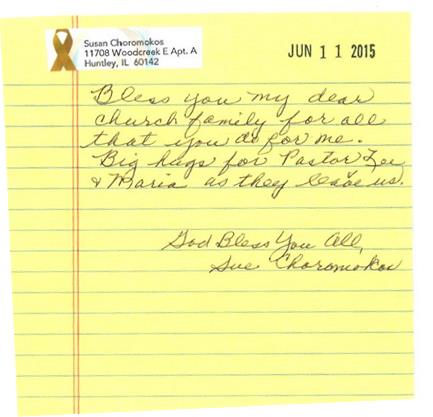 Susan Choromokos
11708 Woodcreek E Apt. A
Huntley, IL 60142
JUN 1 1 2015
Bless you my dear
church family for all
that you do for me.
Big hugs for Pastor
& Maria as they leave us.
God Bless You All,
Sue Choromokos